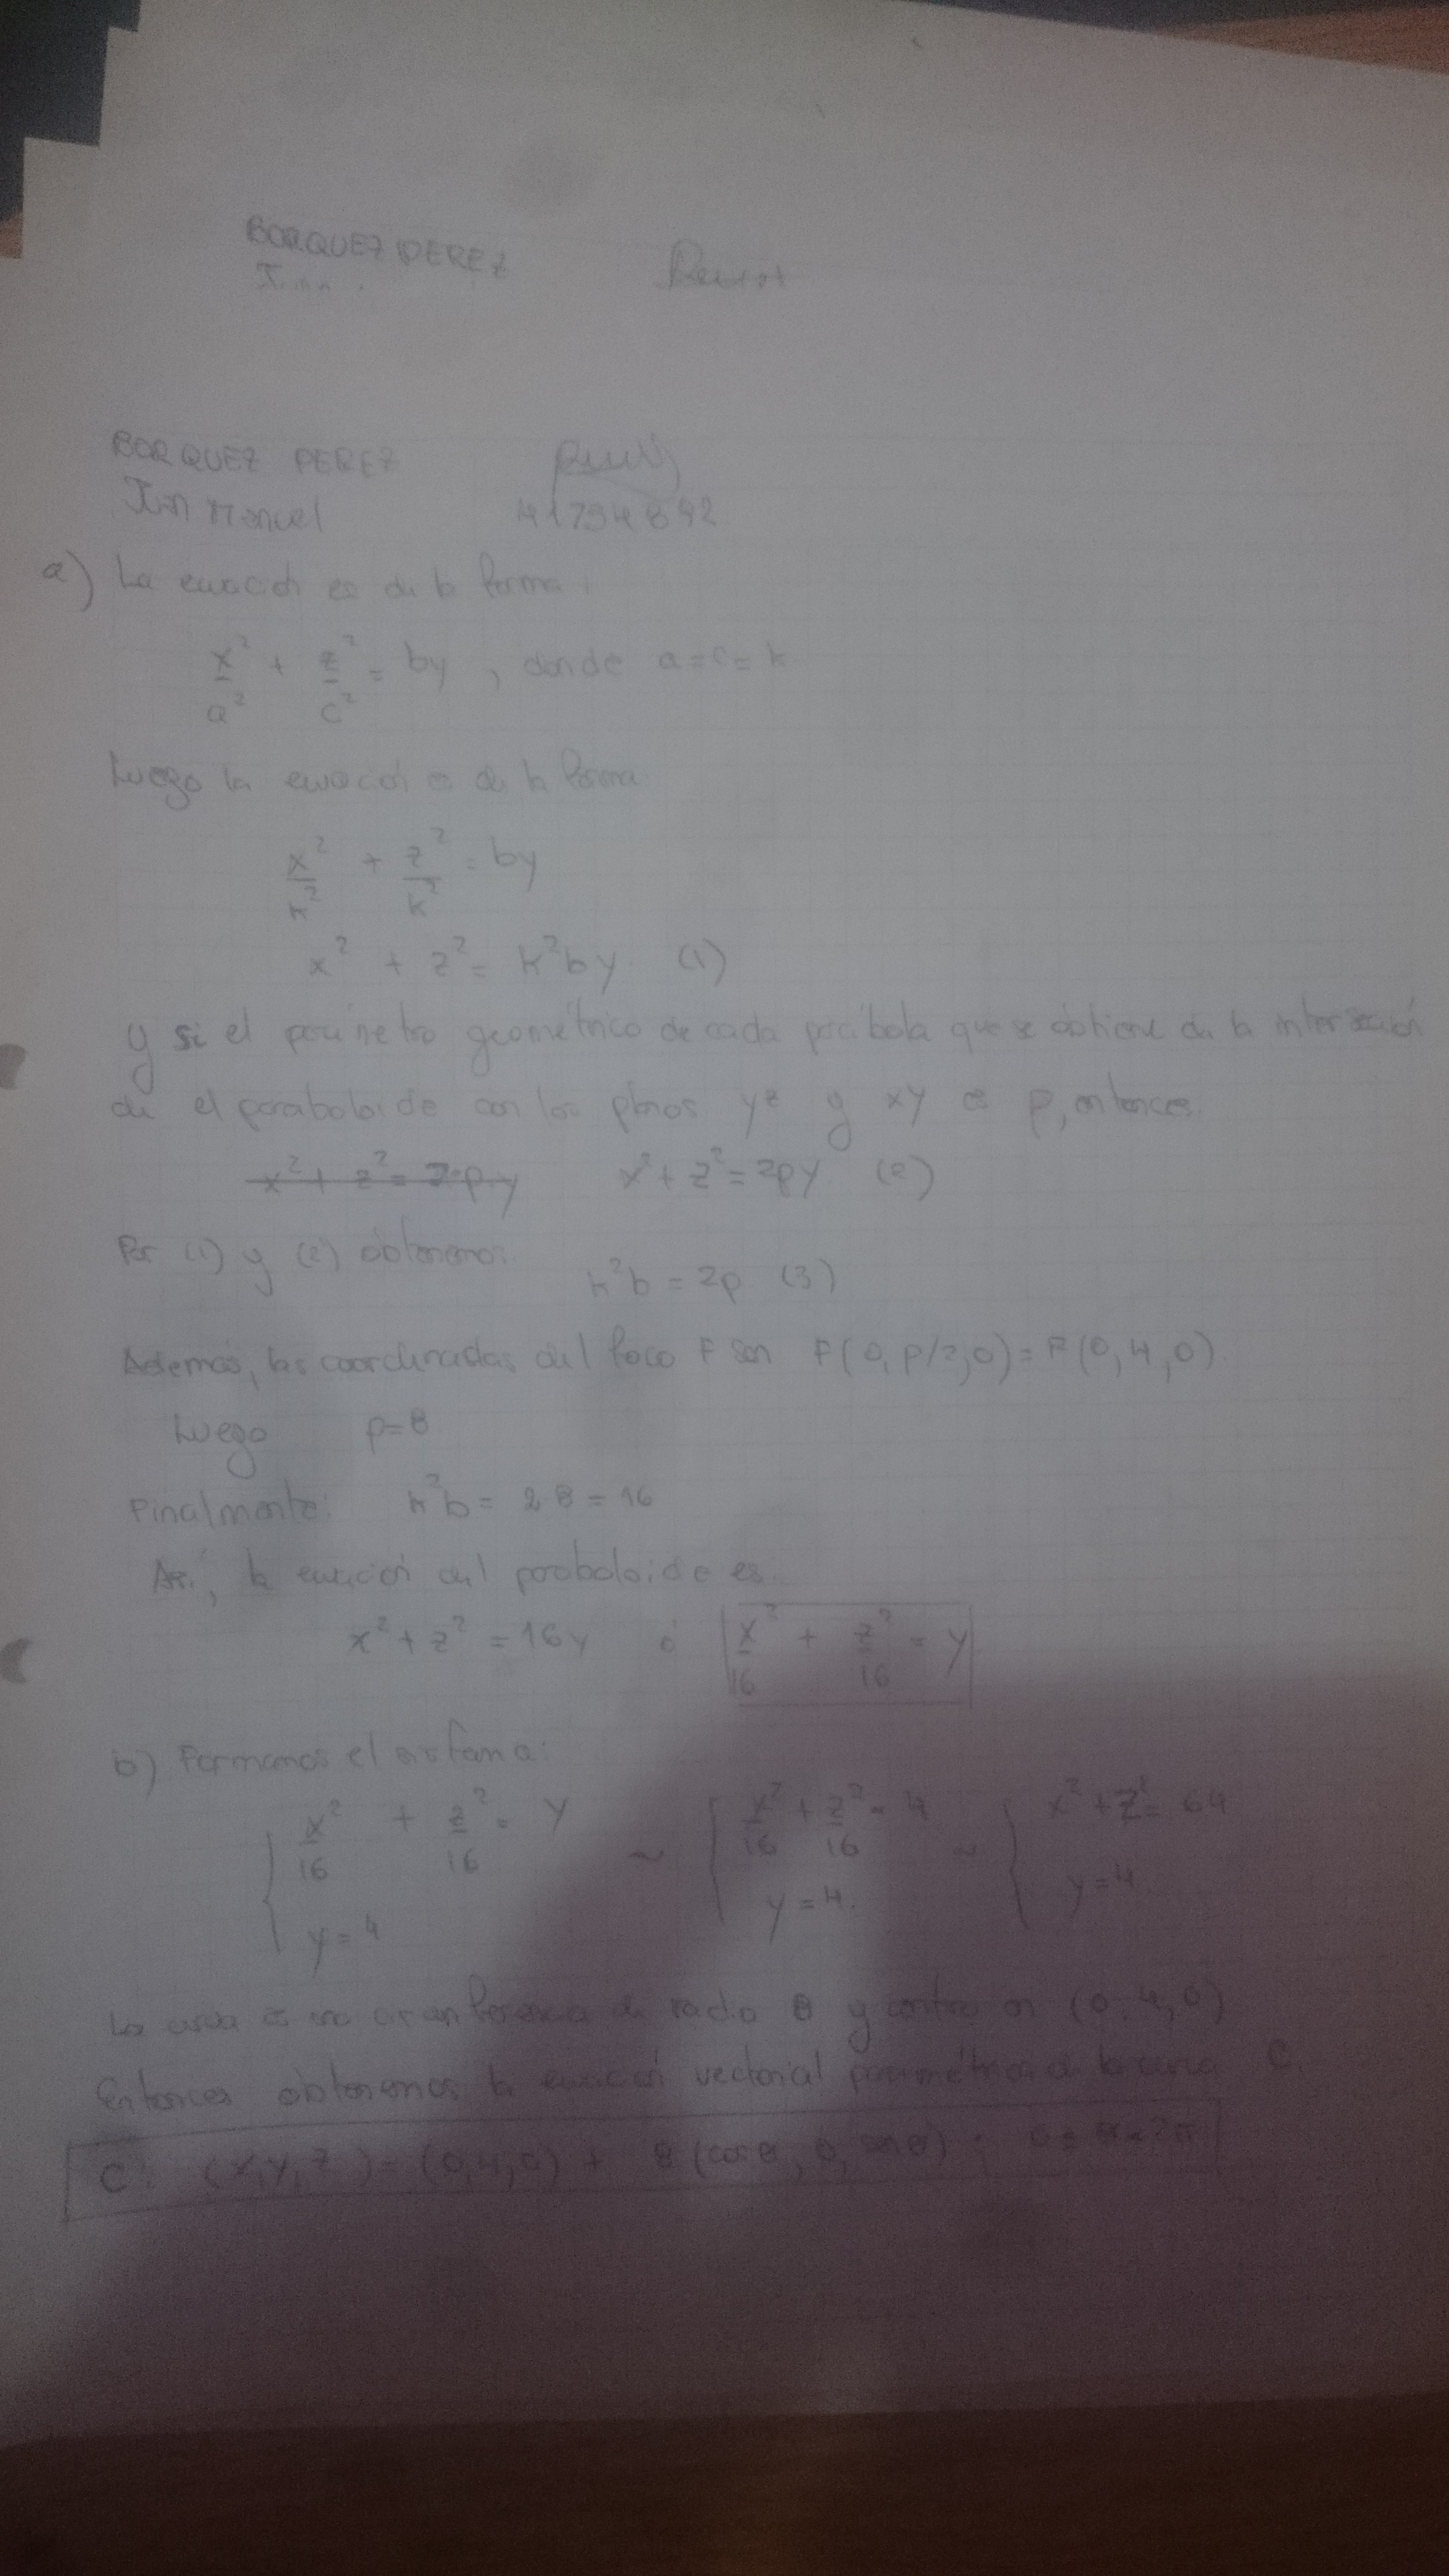 BORQUEZ PEREZ
BORQUEZ PEREZ
Juan Manuel 41794892
a) La ecuación es de la forma:
x²/a² + z²/c² = by, donde a=c=k
Luego la ecuación es de la forma
x²/k² + z²/k² = by
x² + z² = k²by (1)
y si el parámetro geométrico de cada parábola que se obtiene de la intersección
de el paraboloide con los planos yz y xy es p, entonces
x² + z² = 2py x² + z² = 2py (2)
Por (1) y (2) obtenemos:
k²b = 2p (3)
Además, las coordenadas del foco F son F(0, p/2, 0) = F(0, 4, 0).
Luego p=8
Finalmente: k²b = 2 8 = 16
Así, la ecuación del paraboloide es
x² + z² = 16y ó x²/16 + z²/16 = y
b) Formamos el sistema:
{ x²/16 + z²/16 = y ~ { x²/16 + z²/16 = 4 ~ { x² + z² = 64
y = 4 y = 4. y = 4
La curva es una circunferencia de radio 8 y centro en (0, 4, 0)
Entonces obtenemos la ecuación vectorial paramétrica de la curva C.
C: (x, y, z) = (0, 4, 0) + 8 (cos θ, 0, sen θ) ; 0 ≤ θ < 2π